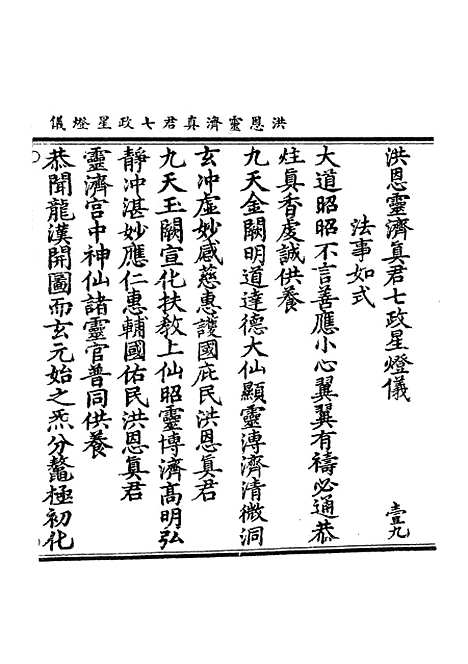 洪恩靈濟真君七政星燈儀
洪恩靈濟真君七政星燈儀
壹九
法事如式
大道昭昭不言善應小心翼翼有禱必通恭
炷真香虔誠供養
九天金闕明道達德大仙顯靈溥濟清微洞
玄冲虛妙感慈惠護國庇民洪恩真君
九天玉闕宣化扶教上仙昭靈博濟高明弘
靜冲湛妙應仁惠輔國佑民洪恩真君
靈濟宮中神仙諸靈官普同供養
恭聞龍漢開圖而玄元始之炁分鼇極初化